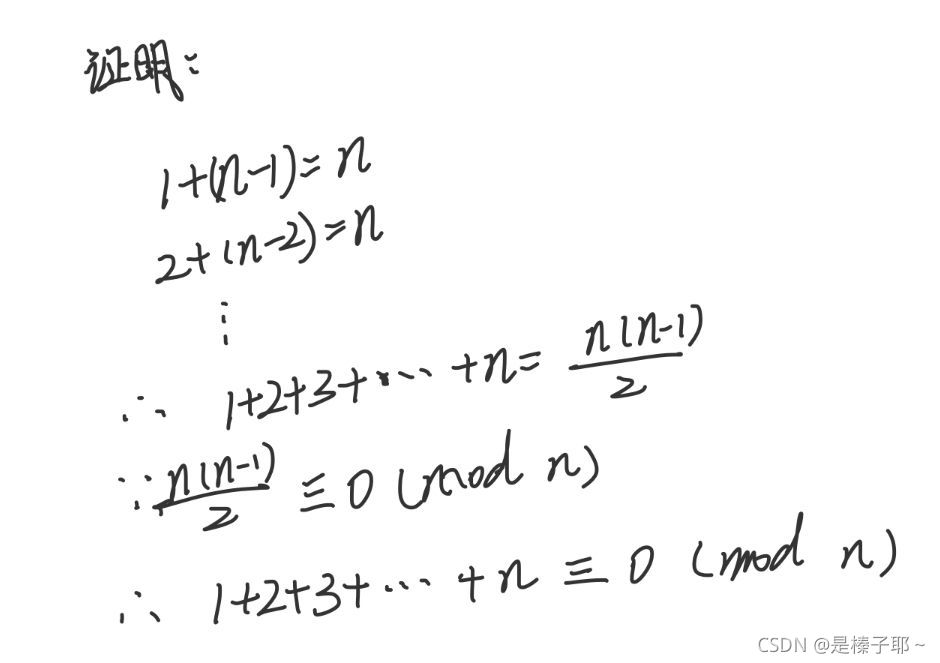 证明：
1+(n-1)=n
2+(n-2)=n
⋮
∴ 1+2+3+⋯+n=n(n-1)/2
∵n(n-1)/2≡0(mod n)
∴ 1+2+3+⋯+n≡0(mod n)
CSDN @是榛子耶~